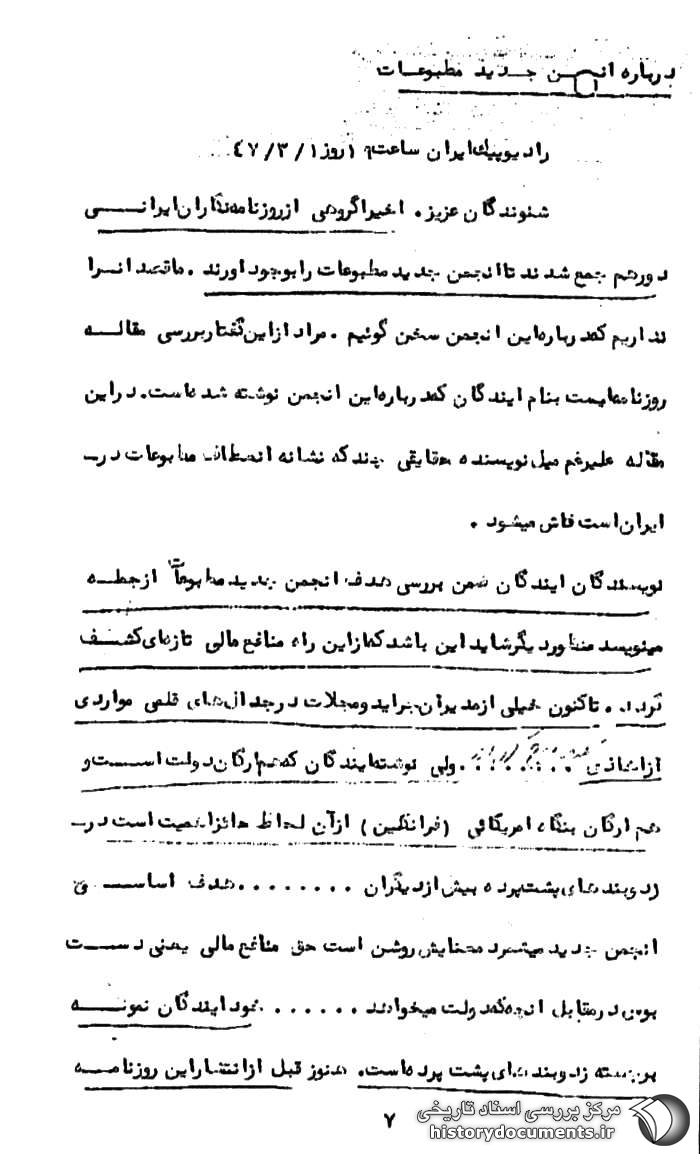 درباره انجمن جدید مطبوعات
رادیو پیک ایران ساعت ۱۹ روز ۴۷/۳/۱
شنوندگان عزیز. اخیرا گروهی از روزنامه‌نگاران ایرانی
دورهم جمع شدند تا انجمن جدید مطبوعات را بوجود اورند. ما قصد انرا
نداریم که درباره این انجمن سخن گوئیم. مراد از این گفتار بررسی مقاله
روزنامه‌ایست بنام ایندگان که درباره این انجمن نوشته شده است. در این
مقاله علیرغم میل نویسنده حقایقی چند که نشانه انحطاط مطبوعات در
ایران است فاش میشود.
نویسندگان ایندگان ضمن بررسی هدف انجمن جدید مطبوعات از جمله
مینویسد منظور دیگر شاید این باشد که از این راه منافع مالی تازه‌ای کشف
گردد. تاکنون خیلی از مدیران جراید و مجلات در جدال‌های قلمی مواردی
از ....... ولی نوشته ایندگان که هم ارگان دولت است و
هم ارگان بنگاه امریکائی (فرانکلین) از آن لحاظ حائز اهمیت است در
زدوبندهای پشت پرده بیش از دیگران ........ هدف اساسی
انجمن جدید میشمرد معنایش روشن است حق منافع مالی یعنی دست
بوسی در مقابل انچه که دولت میخواهد ...... خود ایندگان نمونه
برجسته زدوبندهای پشت پرده است. هنوز قبل از انتشار این روزنامه
۷
مرکز بررسی اسناد تاریخی
historydocuments.ir